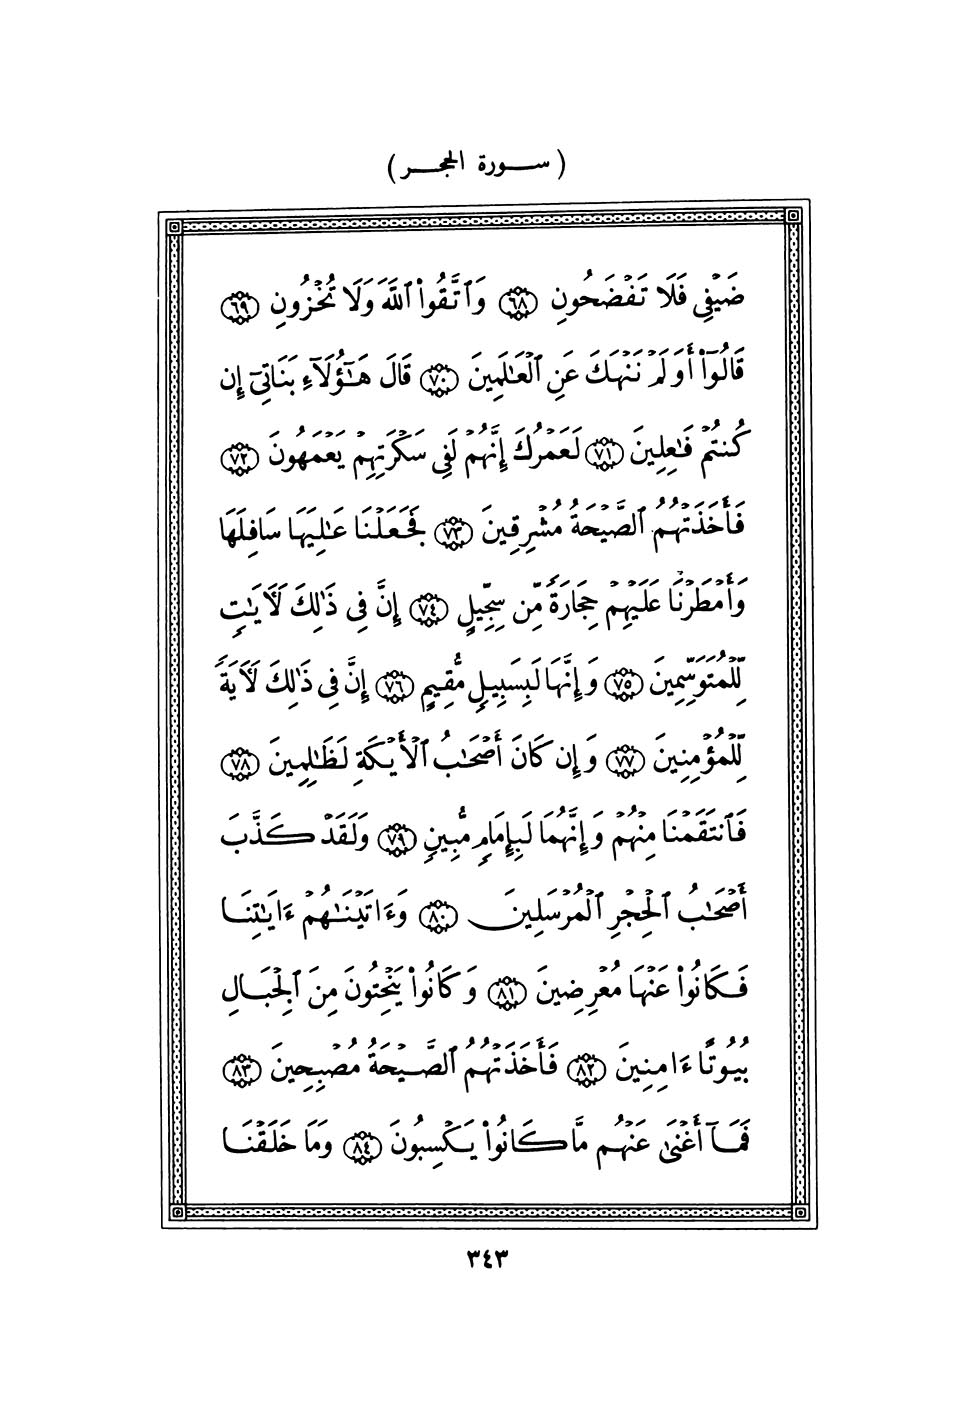 ( ســورة الحجــر )
ضَيْفِى فَلَا تَفْضَحُونِ ٦٨ وَٱتَّقُوا۟ ٱللَّهَ وَلَا تُخْزُونِ ٦٩
قَالُوٓا۟ أَوَلَمْ نَنْهَكَ عَنِ ٱلْعَـٰلَمِينَ ٧٠ قَالَ هَـٰٓؤُلَآءِ بَنَاتِىٓ إِن
كُنتُمْ فَـٰعِلِينَ ٧١ لَعَمْرُكَ إِنَّهُمْ لَفِى سَكْرَتِهِمْ يَعْمَهُونَ ٧٢
فَأَخَذَتْهُمُ ٱلصَّيْحَةُ مُشْرِقِينَ ٧٣ فَجَعَلْنَا عَـٰلِيَهَا سَافِلَهَا
وَأَمْطَرْنَا عَلَيْهِمْ حِجَارَةً مِّن سِجِّيلٍ ٧٤ إِنَّ فِى ذَٰلِكَ لَـَٔايَـٰتٍ
لِّلْمُتَوَسِّمِينَ ٧٥ وَإِنَّهَا لَبِسَبِيلٍ مُّقِيمٍ ٧٦ إِنَّ فِى ذَٰلِكَ لَـَٔايَةً
لِّلْمُؤْمِنِينَ ٧٧ وَإِن كَانَ أَصْحَـٰبُ ٱلْأَيْكَةِ لَظَـٰلِمِينَ ٧٨
فَٱنتَقَمْنَا مِنْهُمْ وَإِنَّهُمَا لَبِإِمَامٍ مُّبِينٍ ٧٩ وَلَقَدْ كَذَّبَ
أَصْحَـٰبُ ٱلْحِجْرِ ٱلْمُرْسَلِينَ ٨٠ وَءَاتَيْنَـٰهُمْ ءَايَـٰتِنَا
فَكَانُوا۟ عَنْهَا مُعْرِضِينَ ٨١ وَكَانُوا۟ يَنْحِتُونَ مِنَ ٱلْجِبَالِ
بُيُوتًا ءَامِنِينَ ٨٢ فَأَخَذَتْهُمُ ٱلصَّيْحَةُ مُصْبِحِينَ ٨٣
فَمَآ أَغْنَىٰ عَنْهُم مَّا كَانُوا۟ يَكْسِبُونَ ٨٤ وَمَا خَلَقْنَا
٣٤٣